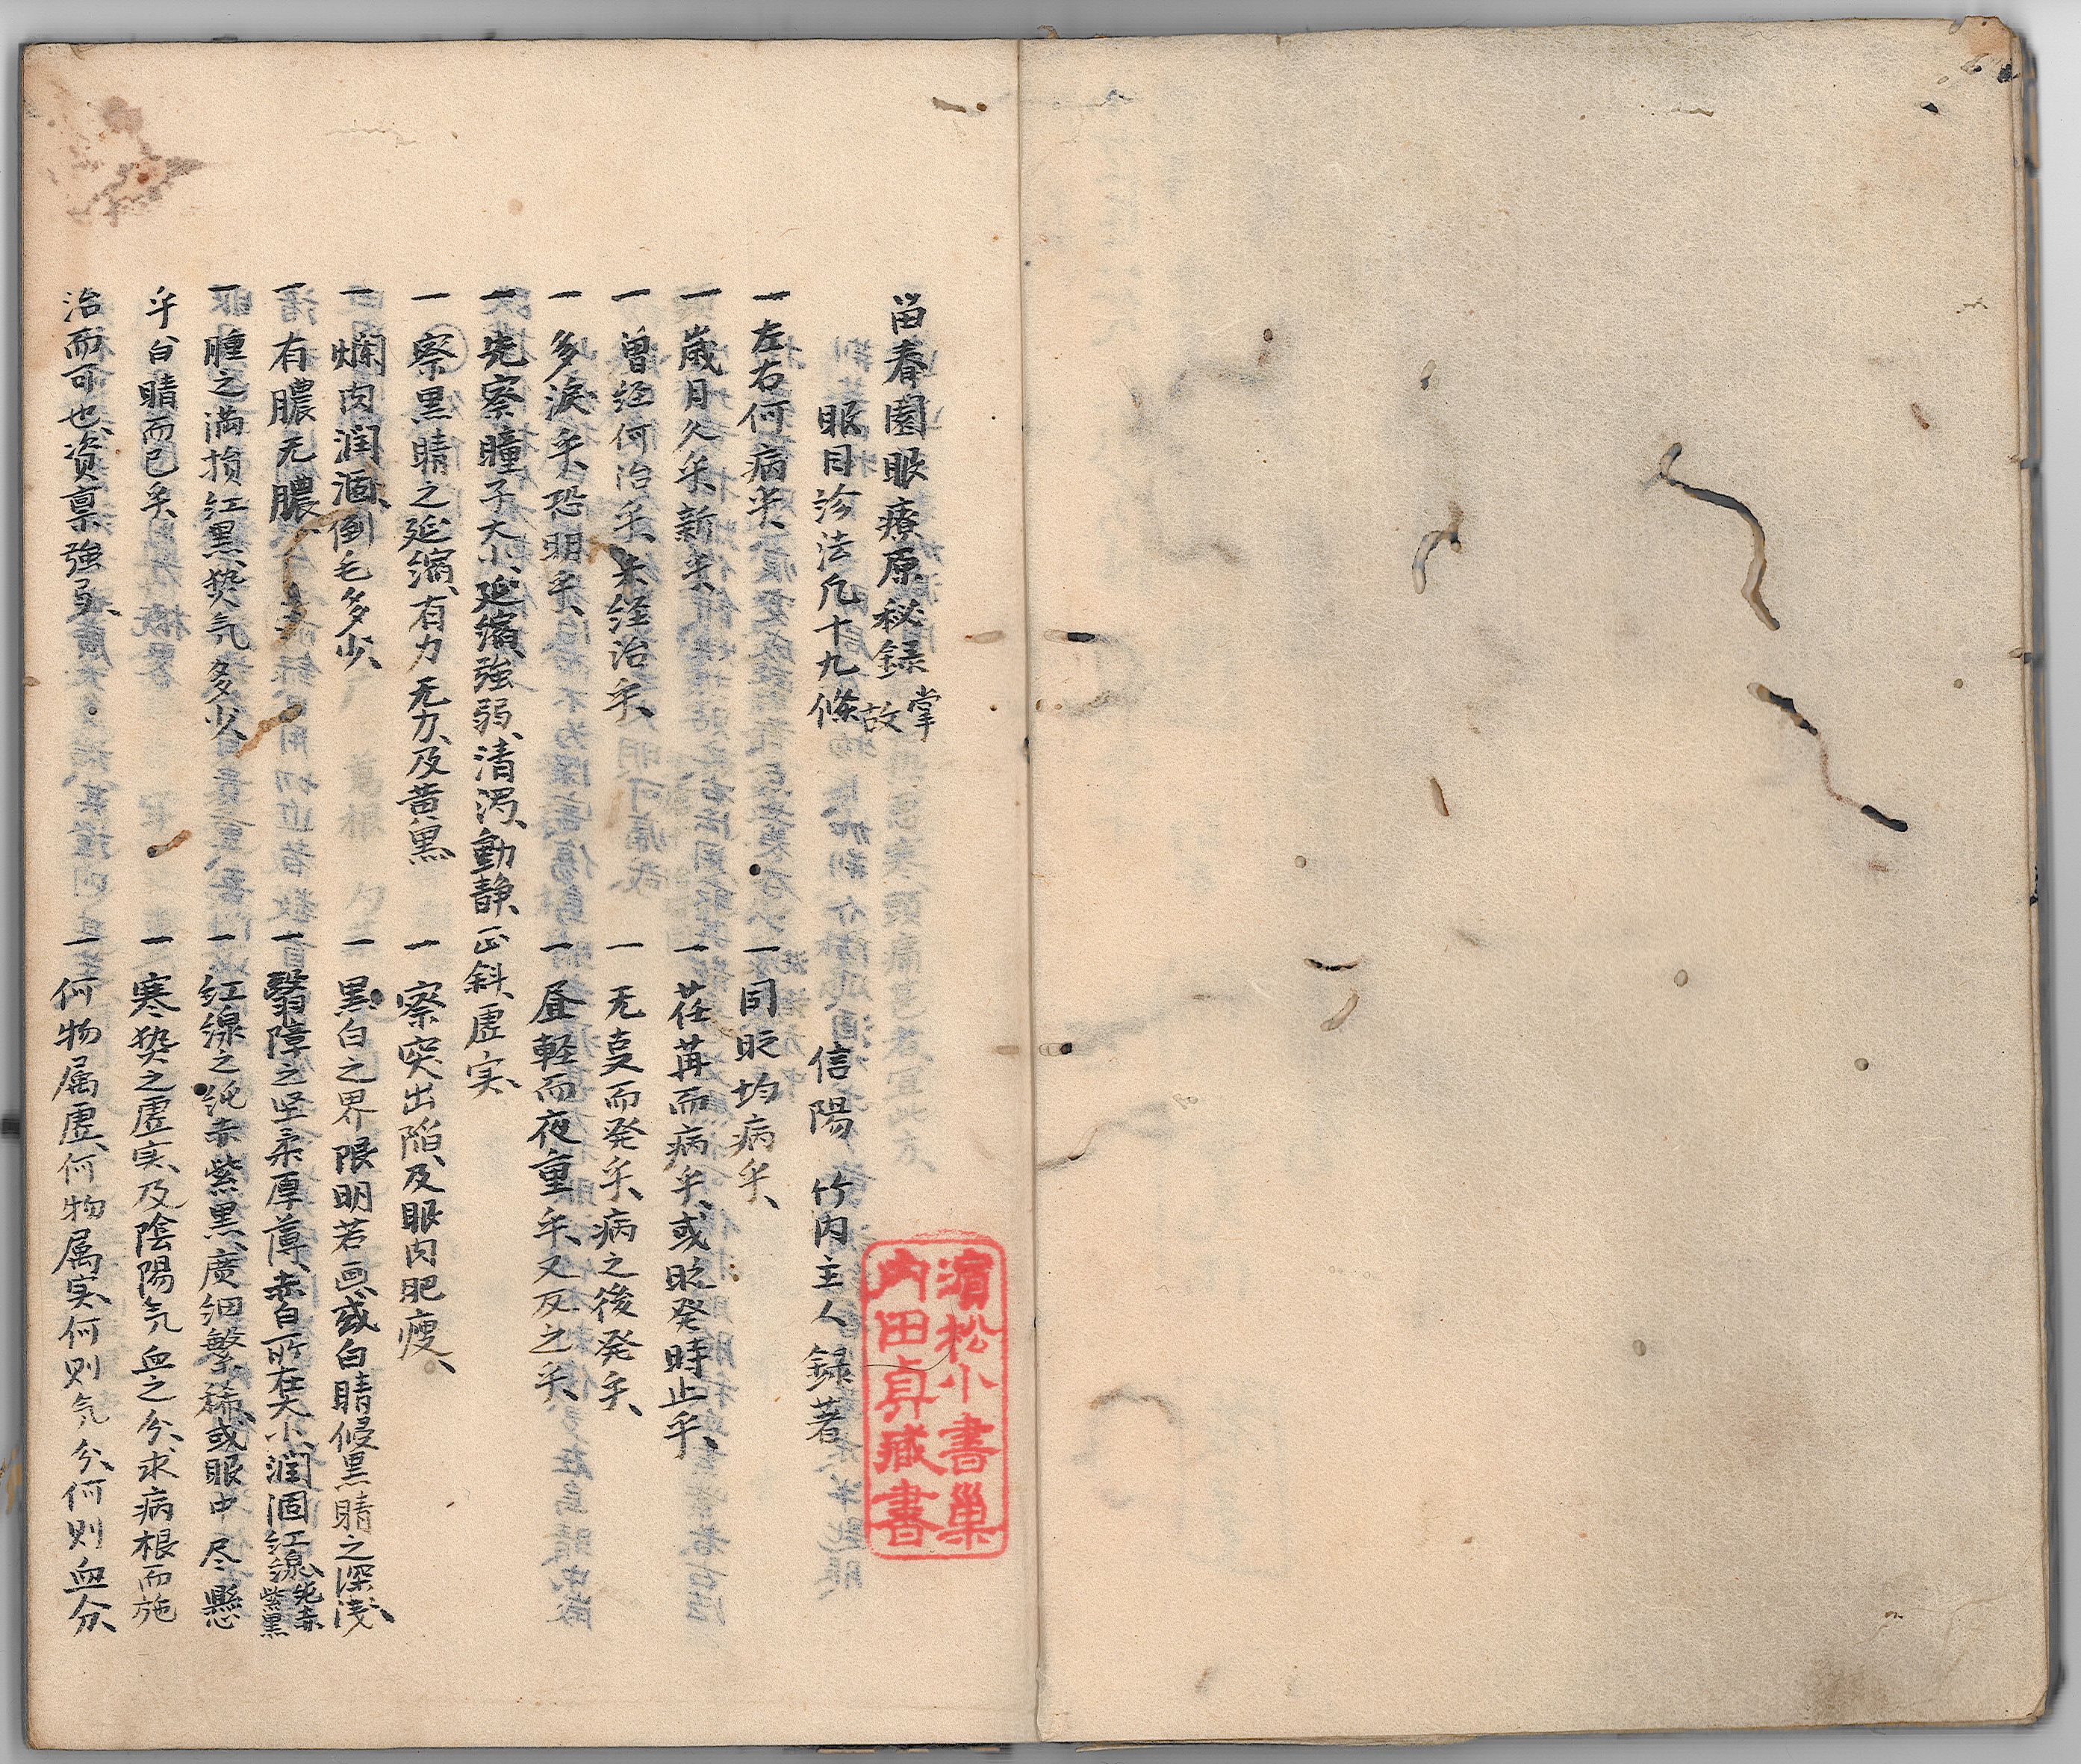 畄春園眼療原秘録 掌故
眼目診法凡十九條 信陽 竹内主人 録著
一左右何病乎、 一同眨均病乎、
一歳月久乎、新乎、 一荏苒而病乎、或眨発時止乎、
一曽経何治乎、未経治乎、 一无㕝而発乎、病之後発乎、
一多涙乎、恐明乎、 一昼軽而夜重乎、又反之乎、
一先察瞳子大小、延縮、強弱、清濁、動静、正斜、虚実、
一察黒睛之延縮、有力无力、及黄黒 一察突出陥、及眼肉肥瘦、
一爛肉潤涸、倒毛多少、 一黒白之界限明若画、或白睛侵黒睛之深浅、
一有膿无膿、 一翳障之坚柔厚薄、赤白所在大小、潤涸紅線純赤紫黒
一腫之満損紅黒、㷍気多少、 一紅線之純赤紫黒、廣細繁稀、或眼中尽懸
乎白睛而已矣 一寒㷍之虚実、及陰陽気血之分、求病根而施
治而可也、資禀強弱、 一何物属虚、何物属実、何則気分、何則血分、
濱松小書巣
内田貞臧書